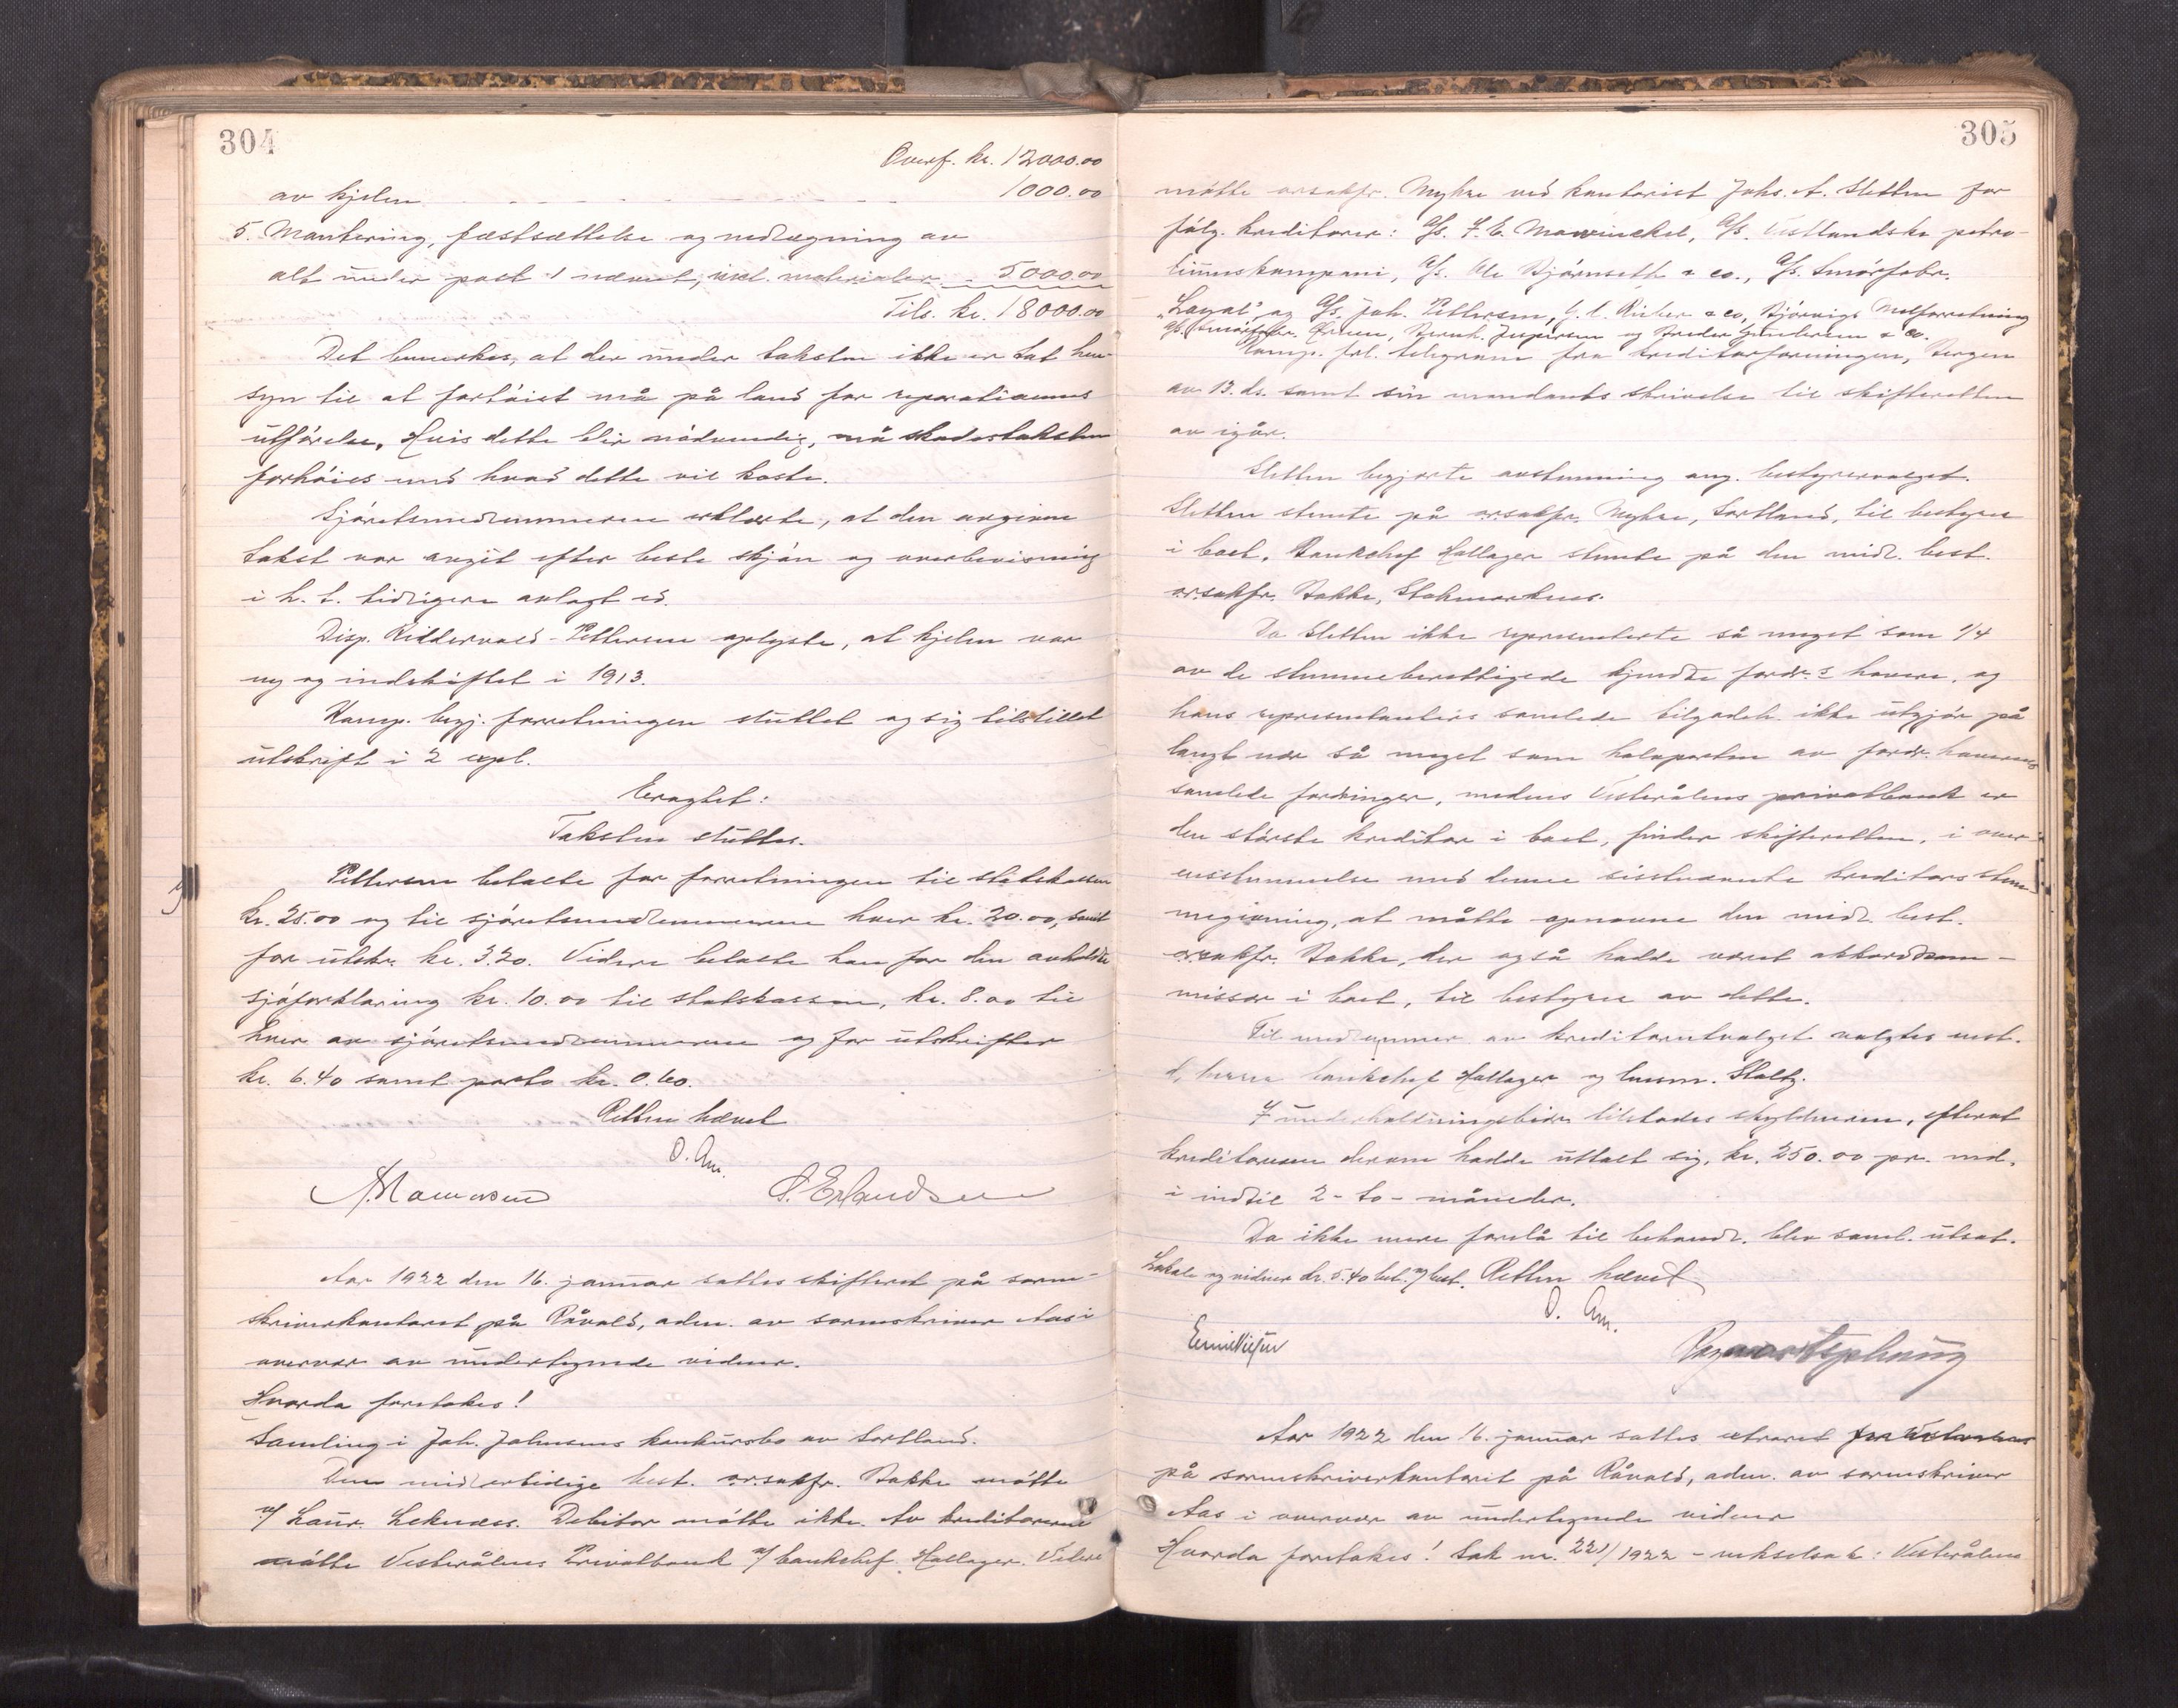 304
Overf. kr. 12000.00
av kjelen - - - - - 1000.00
5. Montering, fæstsættelse og nedlægning av
alt under post 1 nævnt, inkl. materialer - 5000.00
Tils. kr. 18000.00
Det bemerkes, at der under taksten ikke er tat hen-
syn til at fartøiet må på land for reparationens
utførelse. Hvis dette blir nødvendig, må skadestaksten
forhøies med hvad dette vil koste.
Sjøretsmedlemmerne erklærte, at den avgivne
takst var avgit efter beste skjøn og overbevisning
i h. t. tidligere avlagt ed.
Disp. Riddervold-Pettersen oplyste, at kjelen var
ny og indskiftet i 1913.
Komp. begj. forretningen sluttet og sig tilstillet
utskrift i 2 expl.
Eragtet:
Taksten sluttes.
Pettersen betalte for forretningen til statskassen
kr. 25.00 og til sjøretsmedlemmerne hver kr. 20.00, samt
for utskr. kr. 3.20. Videre betalte han for den avholdte
sjøforklaring kr. 10.00 til statskassen, kr. 8.00 til
hver av sjøretsmedlemmerne og for utskrifter
kr. 6.40 samt porto kr. 0.60.
Retten hævet
O. Aas.
P. Erlandsen
Aar 1922 den 16. januar sattes skifteret på soren-
skriverkontoret på Råvold, adm. av sorenskriver Aas i
overvær av undertegnede vidner.
Hvorda foretokes!
Samling i Joh. Johnsens konkursbo av Sortland.
Den midlertidige best. o.r.sakfr. Bakke møtte
v/ Laur. Leknæs. Debitor møtte ikke. Av kreditorerne
møtte Vesterålens Privatbank v/ bankchef Hallager. Videre
305
møtte o.r.sakfr. Myhre ved kontorist Johs. A. Sletten for
følg. kreditorer: A/s. J. E. Mowinckel, A/s. Vestlandske petro-
leumskompani, A/s. Ole Bjørnseth & co., A/s. Smørfabr.
"Loyal", og A/s. Joh. Pettersen, G. C. Rieber & co, Bjørvigs Melforretning
A/s. Smørfabr. Ørnen, Bernh. Jespersen og Brødr. Gundersen & co.
Komp. frl. telegram fra kreditorforeningen, Bergen
av 13. ds. samt sin mandants skrivelse til skifteretten
av igår.
Sletten begjærte avstemning ang. bestyrervalget.
Sletten stemte på o.r.sakfr. Myhre, Sortland, til bestyrer
i boet. Bankchef Hallager stemte på den midl. best.
o.r.sakfr. Bakke, Stokmarknes.
Da Sletten ikke representerte så meget som 1/4
av de stemmeberettigede kjendte fordr.s havere, og
hans representanters samlede tilgodeh. ikke utgjør på
langt nær så meget som halvparten av fordr.havernes
samlede fordringer, medens Vesterålens privatbank er
den største kreditor i boet, finder skifteretten, i over-
ensstemmelse med denne sisstnævnte kreditors stem-
megivning, at måtte opnævne den midl. best.
o.r.sakfr. Bakke, der også hadde været akkordkom-
missær i boet, til bestyrer av dette.
Til medlemmer av kreditorutvalget valgtes enst.
d, herrer bankchef Hallager og lensm. Stoltz.
I underholdningsbidr. tilstodes skyldneren, efterat
kreditorerne derom hadde uttalt sig, kr. 250.00 pr. md.
i indtil 2 - to - måneder.
Da ikke mere forelå til behandl. blev saml. utsat.
Lokale og vidner kr. 5.40 bet. v/ best. Retten hævet
O. Aas.
Aar 1922 den 16. januar sattes extraret
på sorenskriverkontoret på Råvold, adm. av sorenskriver
Aas i overvær av undertegnede vidner
Hvorda foretokes! Sak nr. 221/1922 - vekselsak: Vesterålens